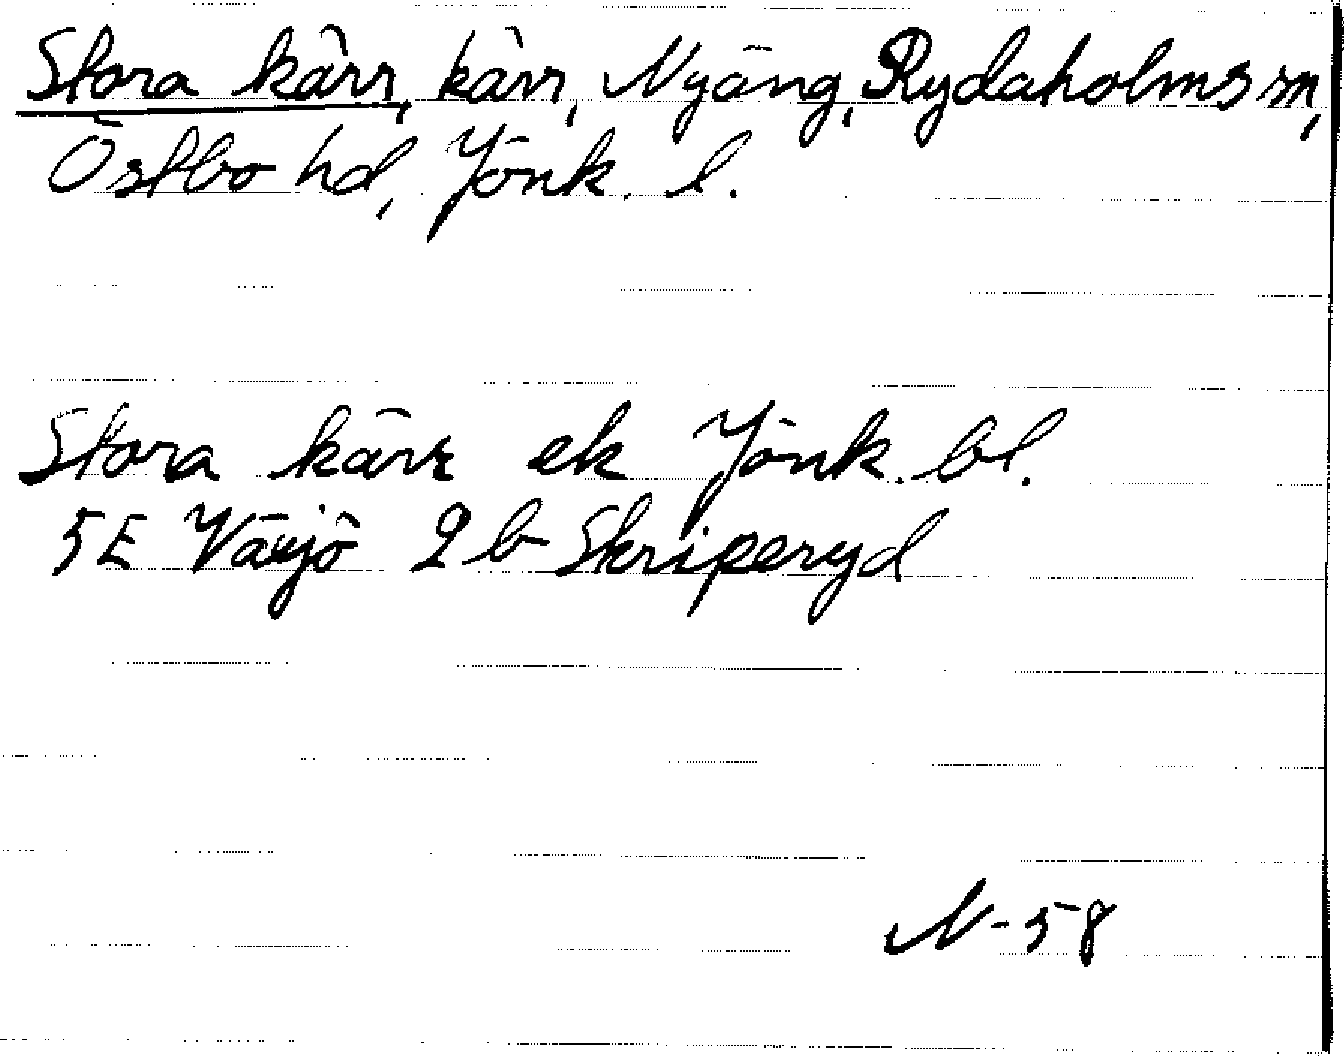 Stora kärr, kärr, Nyäng, Rydaholms sn,
Östbo hd, Jönk. l.
Stora kärr ek Jönk. bl.
5E Växjö 2b Skriperyd
N-58